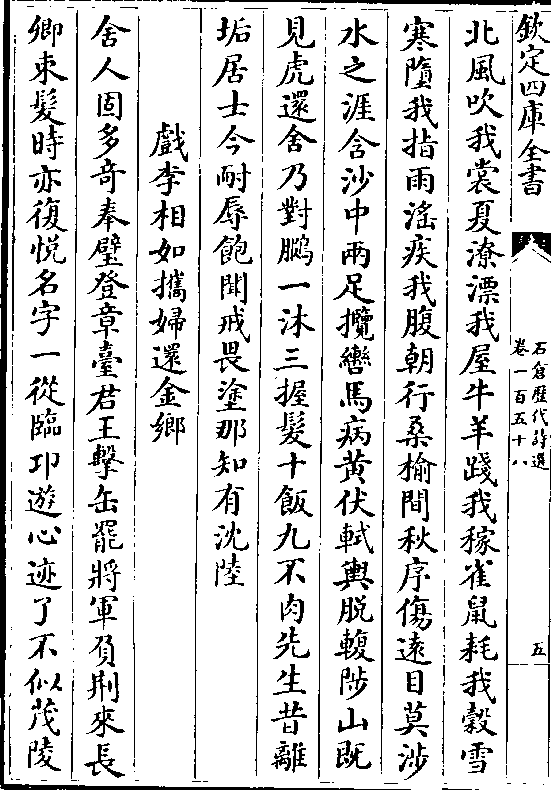 欽定四庫全書
石倉歷代詩選
卷一百五十八
五
北風吹我裳夏潦漂我屋牛羊踐我稼雀鼠耗我穀雪
寒墮我指雨滛疾我腹朝行桑榆間秋序傷遠目莫渉
水之涯含沙中兩足攬轡馬病黄伏軾輿脱輹陟山既
見虎還舍乃對鵩一沐三握髮十飯九不肉先生昔離
垢居士今耐辱飽聞戒畏塗那知有沈陸
戲李相如攜婦還金鄉
舍人固多奇奉璧登章臺君王擊缶罷將軍負荆來長
卿束髮時亦復悦名字一從臨卭遊心迹了不似茂陵